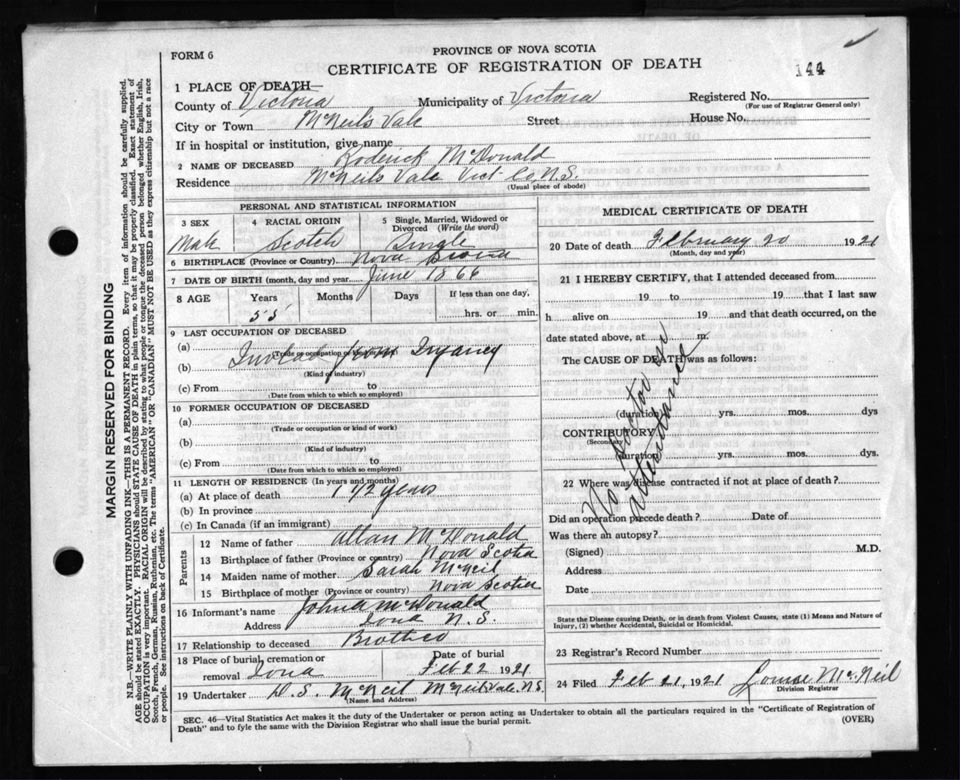 FORM 6
PROVINCE OF NOVA SCOTIA
CERTIFICATE OF REGISTRATION OF DEATH
144
1 PLACE OF DEATH—
County of Victoria Municipality of Victoria Registered No.
(For use of Registrar General only)
City or Town McNeils Vale Street House No.
If in hospital or institution, give name
2 NAME OF DECEASED Roderick McDonald
Residence McNeils Vale Vict Co, N.S.
(Usual place of abode)
PERSONAL AND STATISTICAL INFORMATION
3 SEX 4 RACIAL ORIGIN 5 Single, Married, Widowed or Divorced (Write the word)
Male Scotch Single
6 BIRTHPLACE (Province or Country) Nova Scotia
7 DATE OF BIRTH (month, day and year) June 1866
8 AGE Years Months Days If less than one day,
55 hrs. or min.
9 LAST OCCUPATION OF DECEASED
(a)
(Trade or occupation or kind of work)
(b) from Infancy
(Kind of industry)
(c) From to
(Date from which to which so employed)
10 FORMER OCCUPATION OF DECEASED
(a)
(Trade or occupation or kind of work)
(b)
(Kind of industry)
(c) From to
(Date from which to which so employed)
11 LENGTH OF RESIDENCE (In years and months)
(a) At place of death 1 1/2 years
(b) In province
(c) In Canada (if an immigrant)
Parents
12 Name of father Allan McDonald
13 Birthplace of father (Province or country) Nova Scotia
14 Maiden name of mother Sarah McNeil
15 Birthplace of mother (Province or country) Nova Scotia
16 Informant's name McDonald
Address Iona N.S.
17 Relationship to deceased Brother
18 Place of burial, cremation or Date of burial
removal Iona Feb 22 1921
19 Undertaker D. S. McNeil McNeils Vale, N.S.
(Name and Address)
MEDICAL CERTIFICATE OF DEATH
20 Date of death February 20 1921
(Month, day and year)
21 I HEREBY CERTIFY, that I attended deceased from
19 to 19 that I last saw
h alive on 19 and that death occurred, on the
date stated above, at m.
The CAUSE OF DEATH was as follows:
No Doctor in attendance
(duration) yrs. mos. dys
CONTRIBUTORY
(Secondary)
(duration) yrs. mos. dys.
22 Where was disease contracted if not at place of death?
Did an operation precede death? Date of
Was there an autopsy?
(Signed) M.D.
Address
Date
State the Disease causing Death, or in death from Violent Causes, state (1) Means and Nature of
Injury, (2) whether Accidental, Suicidal or Homicidal.
23 Registrar's Record Number
24 Filed Feb 21, 1921 Louise McNeil
Division Registrar
SEC. 46—Vital Statistics Act makes it the duty of the Undertaker or person acting as Undertaker to obtain all the particulars required in the "Certificate of Registration of
Death" and to fyle the same with the Division Registrar who shall issue the burial permit.
(OVER)
MARGIN RESERVED FOR BINDING
N.B.—WRITE PLAINLY WITH UNFADING INK—THIS IS A PERMANENT RECORD. Every item of information should be carefully supplied.
AGE should be stated EXACTLY. PHYSICIANS should STATE CAUSE OF DEATH in plain terms, so that it may be properly classified. Exact statement of
OCCUPATION is very important. RACIAL ORIGIN will be described by stating to what people or tongue the deceased person belonged whether English, Irish,
Scotch, French, German, Russian, Ruthenian, etc. The terms "AMERICAN" OR "CANADIAN" MUST NOT BE USED as they express citizenship but not a race
or people. See instructions on back of Certificate.